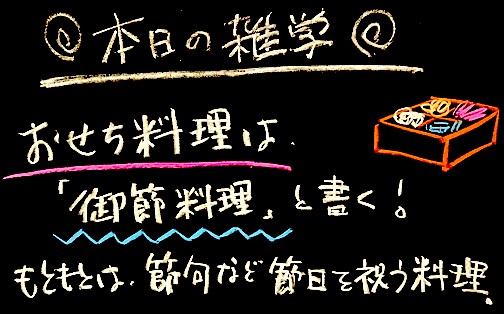 本日の雑学
おせち料理は、
「御節料理」と書く!
もともとは、節句など節日を祝う料理。